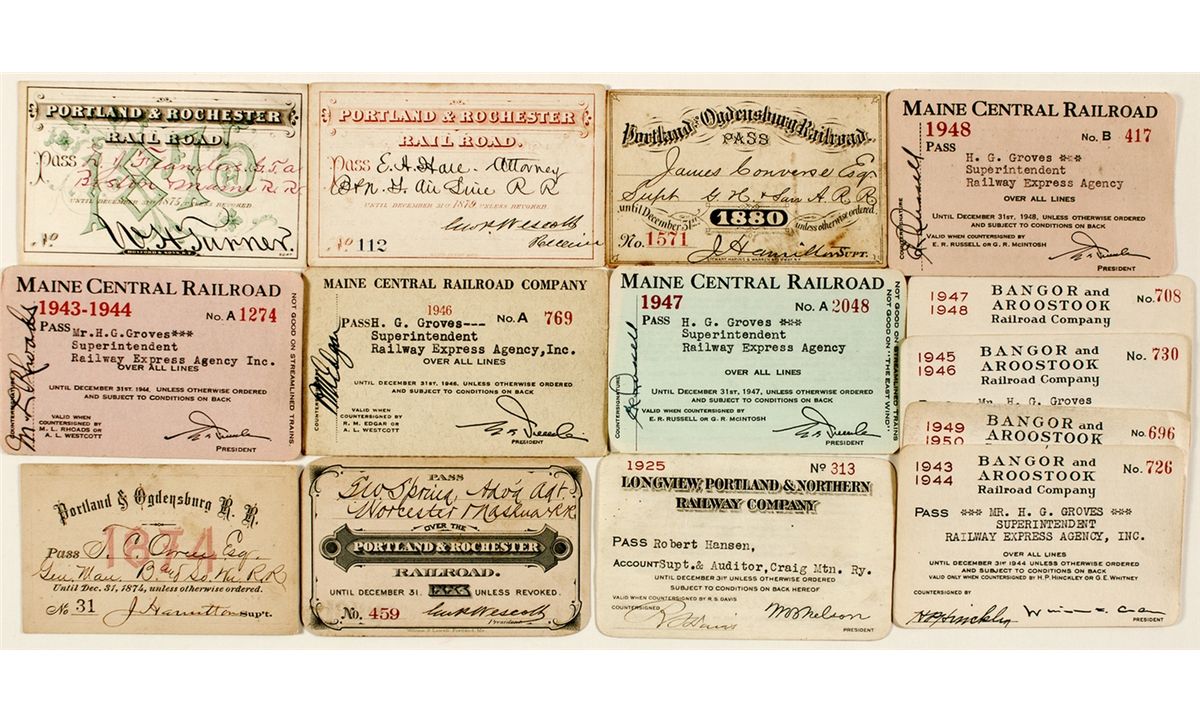 PORTLAND & ROCHESTER
RAIL ROAD.
Pass
UNTIL DECEMBER 31st 1875 UNLESS REVOKED
No.
W. H. Turner.
PORTLAND & ROCHESTER
RAIL ROAD.
Pass E. H. Hale Attorney
Air Line R R
UNTIL DECEMBER 31st 1879 UNLESS REVOKED
No 112
Geo P Wescott
Receiver
Portland and Ogdensburg Railroad
PASS
James Converse Esq.
Supt G. H. & San A. R R
until December 31st 1880 unless otherwise ordered.
No. 1571
J Hamilton SUPT.
MAINE CENTRAL RAILROAD
1948
No. B 417
PASS
H. G. Groves ***
Superintendent
Railway Express Agency
OVER ALL LINES
UNTIL DECEMBER 31ST, 1948, UNLESS OTHERWISE ORDERED
AND SUBJECT TO CONDITIONS ON BACK
VALID WHEN COUNTERSIGNED BY
E. R. RUSSELL OR G. R. McINTOSH
PRESIDENT
COUNTERSIGNATURE
E R Russell
MAINE CENTRAL RAILROAD
1943-1944
No. A 1274
PASS Mr. H. G. Groves***
Superintendent
Railway Express Agency Inc.
OVER ALL LINES
UNTIL DECEMBER 31ST, 1944, UNLESS OTHERWISE ORDERED
AND SUBJECT TO CONDITIONS ON BACK
VALID WHEN
COUNTERSIGNED BY
M. L. RHOADS OR
A. L. WESTCOTT
PRESIDENT
M L Rhoads
NOT GOOD ON STREAMLINED TRAINS
MAINE CENTRAL RAILROAD COMPANY
1946
No. A 769
PASS H. G. Groves---
Superintendent
Railway Express Agency, Inc.
OVER ALL LINES
UNTIL DECEMBER 31ST, 1946, UNLESS OTHERWISE ORDERED
AND SUBJECT TO CONDITIONS ON BACK
VALID WHEN
COUNTERSIGNED BY
R. M. EDGAR OR
A. L. WESTCOTT
PRESIDENT
R M Edgar
MAINE CENTRAL RAILROAD
1947
No. A 2048
PASS H. G. Groves ***
Superintendent
Railway Express Agency
OVER ALL LINES
UNTIL DECEMBER 31ST, 1947, UNLESS OTHERWISE ORDERED
AND SUBJECT TO CONDITIONS ON BACK
VALID WHEN COUNTERSIGNED BY
E. R. RUSSELL OR G. R. McINTOSH
PRESIDENT
COUNTERSIGNATURE
E R Russell
NOT GOOD ON STREAMLINED TRAINS
NOT GOOD ON "THE EAST WIND"
1947
1948
BANGOR and
AROOSTOOK
Railroad Company
No. 708
1945
1946
BANGOR and
AROOSTOOK
Railroad Company
No. 730
Mr. H. G. Groves
1949
1950
BANGOR and
AROOSTOOK
No. 696
1943
1944
BANGOR and
AROOSTOOK
Railroad Company
No. 726
PASS *** MR. H. G. GROVES ***
SUPERINTENDENT
RAILWAY EXPRESS AGENCY, INC.
OVER ALL LINES
UNTIL DECEMBER 31st 1944 UNLESS OTHERWISE ORDERED
AND SUBJECT TO CONDITIONS ON BACK
VALID ONLY WHEN COUNTERSIGNED BY H. P. HINCKLEY OR G. E. WHITNEY
COUNTERSIGNED BY
H P Hinckley
PRESIDENT
Portland & Ogdensburg R. R.
1874
Pass
Until Dec. 31, 1874, unless otherwise ordered.
No 31
J. Hamilton Sup't.
PASS
Geo Spring, Adv'g Agt.
Worcester & Nashua R R
OVER THE
PORTLAND & ROCHESTER
RAILROAD.
UNTIL DECEMBER 31. UNLESS REVOKED.
No. 459
Geo P Wescott
President
1925
No 313
LONGVIEW, PORTLAND & NORTHERN
RAILWAY COMPANY
PASS Robert Hansen,
ACCOUNT Supt.& Auditor, Craig Mtn. Ry.
UNTIL DECEMBER 31st UNLESS OTHERWISE ORDERED
SUBJECT TO CONDITIONS ON BACK HEREOF
VALID WHEN COUNTERSIGNED BY R. S. DAVIS
COUNTERSIGNED
R S Davis
PRESIDENT